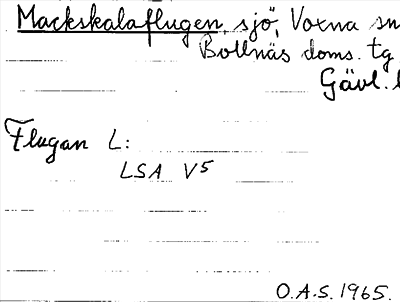 Mackskalaflugen, sjö, Voxna sn
Bollnäs doms. tg
Gävl. l
Flugan L:
LSA V5
O.A.S. 1965.